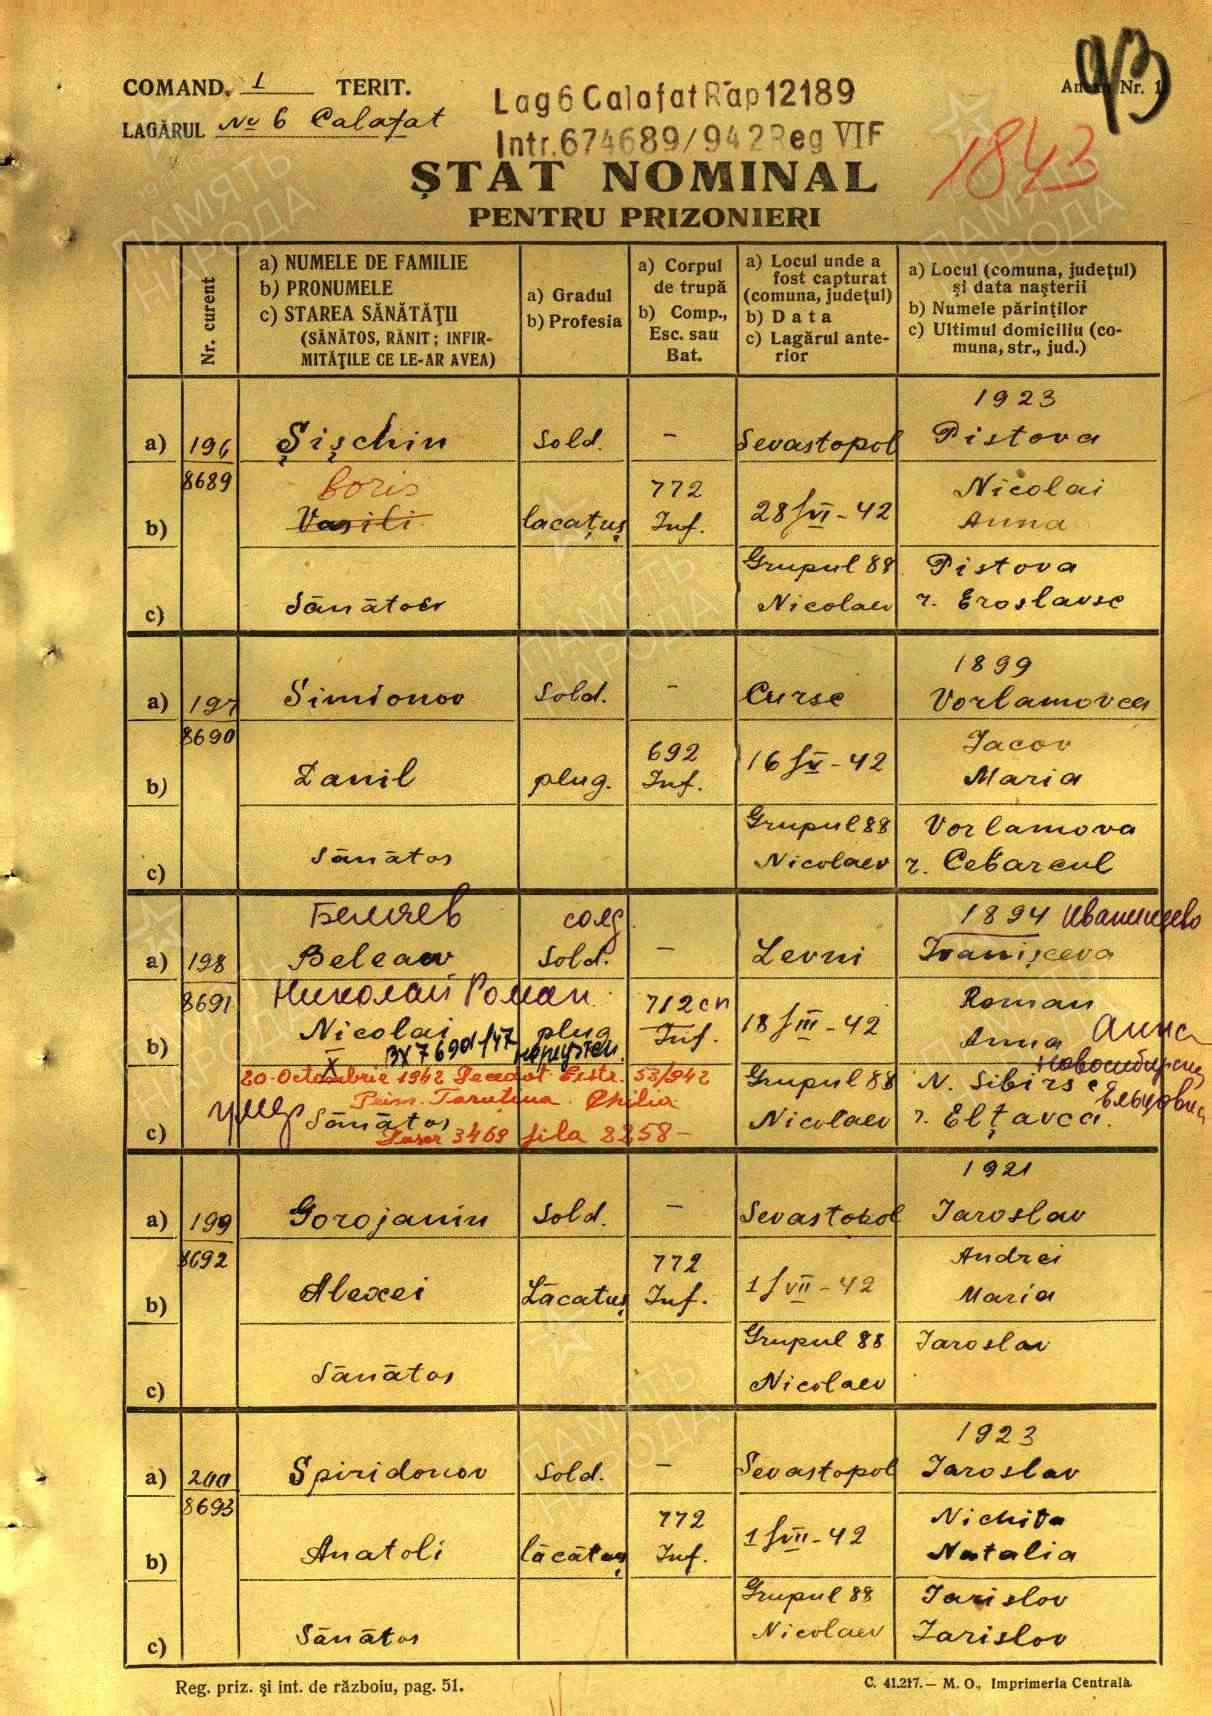 COMAND. 1 TERIT.
LAGĂRUL No 6 Calafat
Lag 6 Calafat Rap 12189
Intr. 674689/942 Reg VI F
Nr. 1
93
1843
ȘTAT NOMINAL
PENTRU PRIZONIERI
Nr. curent
a) NUMELE DE FAMILIE
b) PRONUMELE
c) STAREA SĂNĂTĂȚII
(SĂNĂTOS, RĂNIT; INFIR-
MITĂȚILE CE LE-AR AVEA)
a) Gradul
b) Profesia
a) Corpul
de trupă
b) Comp.,
Esc. sau
Bat.
a) Locul unde a
fost capturat
(comuna, județul)
b) Data
c) Lagărul ante-
rior
a) Locul (comuna, județul)
și data nașterii
b) Numele părinților
c) Ultimul domiciliu (co-
muna, str., jud.)
1923
a) 196 Șișchin Sold. - Sevastopol Pistova
8689 Boris 772 Nicolai
b) Vasili lacatuș Inf. 28/VI-42 Anna
Grupul 88 Pistova
c) Sănătos Nicolaev r. Eroslavsc
1899
a) 197 Simionov Sold. - Curse Vorlamovca
8690 692 Iacov
b) Danil plug. Inf. 16/V-42 Maria
Grupul 88 Vorlamova
c) Sănătos Nicolaev r. Cebarcul
Беляев солд 1894 Иванищево
a) 198 Beleaev Sold. - Levni Ivanișceva
8691 Николай Роман 712 сп Roman
b) Nicolai plug Inf. 18/III-42 Anna Анна
X ВХ 7690д/47 Новосибирск
20 Octombrie 1942 Decedat Estr. 53/942 Grupul 88 N. Sibirsc Ельцовка
Prim. Tarutina Chilia
c) умер Sănătos Nicolaev r. Elțavca.
Dosar 3469 fila 8258-
1921
a) 199 Gorojanin Sold. - Sevastopol Iaroslav
8692 772 Andrei
b) Alexei Lăcatuș Inf. 1/VII-42 Maria
Grupul 88 Iaroslav
c) Sănătos Nicolaev
1923
a) 200 Spiridonov Sold. - Sevastopol Iaroslav
8693 772 Nichita
b) Anatoli lăcătuș Inf. 1/VII-42 Natalia
Grupul 88 Iarislov
c) Sănătos Nicolaev Iarislov
Reg. priz. și int. de război, pag. 51.
C. 41.217.— M. O., Imprimeria Centrală.
ПАМЯТЬ
НАРОДА